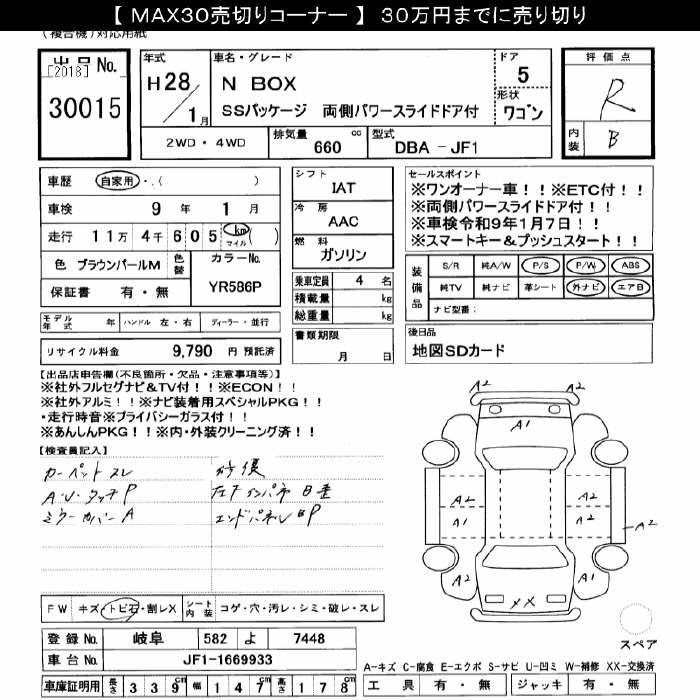 【 MAX30売切りコーナー 】 30万円までに売り切り
(複合機)対応用紙
出品No.
[2018]
30015
年式
H28/1月
車名・グレード
N BOX
SSパッケージ 両側パワースライドドア付
ドア
5
形状
ワゴン
評価点
R
内装
B
2WD・4WD
排気量
660 cc
型式
DBA - JF1
車歴 自家用・( )
車検 9年 1月
走行 11万4千605 km マイル ( )
色 ブラウンパールM
色替
カラーNo.
YR586P
保証書 有・無
モデル年式 年 ハンドル 左・右 ディーラー・並行
リサイクル料金 9,790 円 預託済
シフト
IAT
冷房
AAC
燃料
ガソリン
乗車定員 4 名
積載量 kg
総重量 kg
書類期限
月 日
セールスポイント
※ワンオーナー車!!※ETC付!!
※両側パワースライドドア付!!
※車検令和9年1月7日!!
※スマートキー&プッシュスタート!!
装備品
S/R 純A/W P/S P/W ABS
純TV 純ナビ 革シート 外ナビ エアB
ナビ型番:
後日品
地図SDカード
【出品店申告欄(不良箇所・欠品・注意事項等)】
※社外フルセグナビ&TV付!!※ECON!!
※社外アルミ!!※ナビ装着用スペシャルPKG!!
・走行時音※プライバシーガラス付!!
※あんしんPKG!!※内・外装クリーニング済!!
【検査員記入】
カーペットスレ
A.U.タッチP
ミラーカバーA
修復
左Fインパネ
エンドパネル
A2 A2
A1
A2 A2
A1 A2
A2
A2 A1
XX
スペア
FW キズ・トビ石・割レX
シート内装 コゲ・穴・汚レ・シミ・破レ・スレ
登録No. 岐阜 582 よ 7448
車台No. JF1-1669933
車庫証明用 長さ 339cm 幅 147cm 高さ 178cm
A-キズ C-腐食 E-エクボ S-サビ U-凹ミ W-補修 XX-交換済
工具 有・無 ジャッキ 有・無